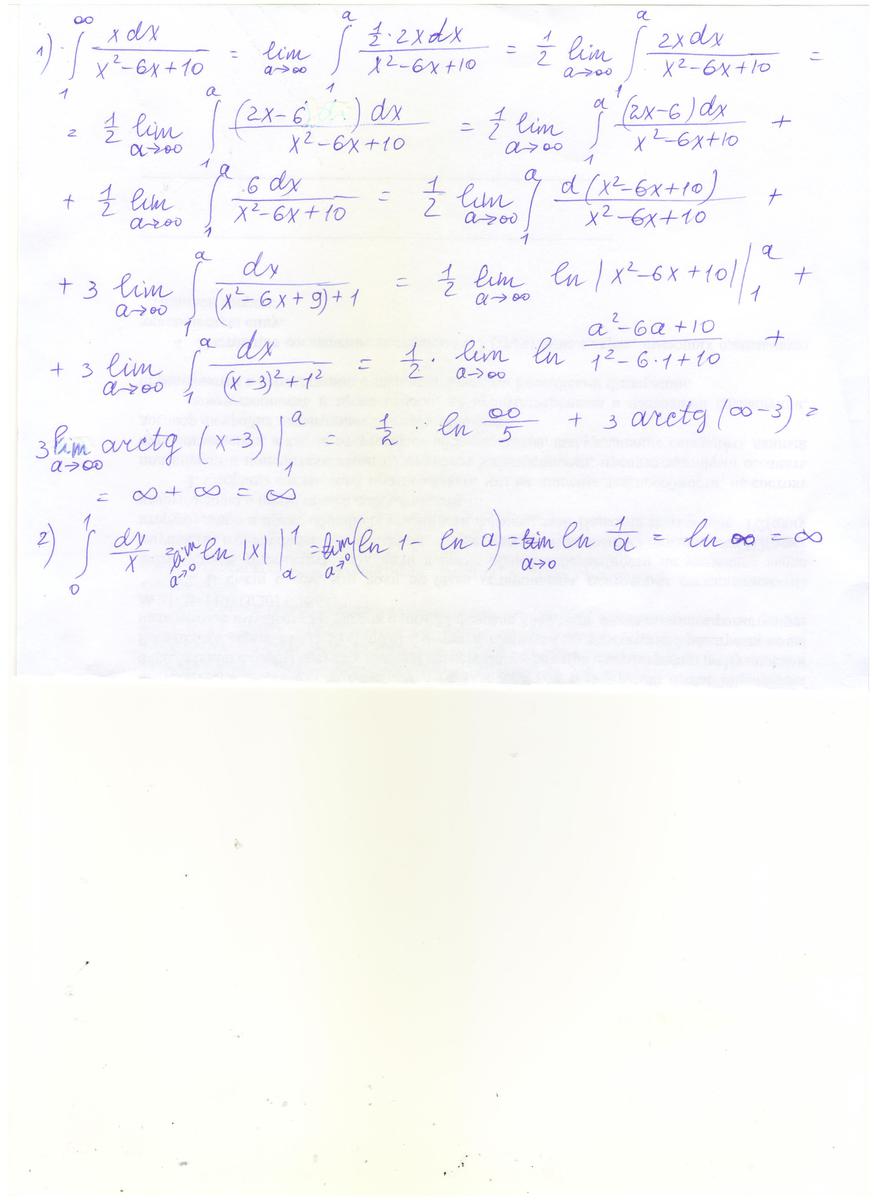 1) ∫₁^∞ x dx / (x²-6x+10) = lim_{a→∞} ∫₁^a ½·2x dx / (x²-6x+10) = ½ lim_{a→∞} ∫₁^a 2x dx / (x²-6x+10) =
= ½ lim_{a→∞} ∫₁^a (2x-6) dx / (x²-6x+10) = ½ lim_{a→∞} ∫₁^a (2x-6) dx / (x²-6x+10) +
+ ½ lim_{a→∞} ∫₁^a 6 dx / (x²-6x+10) = ½ lim_{a→∞} ∫₁^a d(x²-6x+10) / (x²-6x+10) +
+ 3 lim_{a→∞} ∫₁^a dx / ((x²-6x+9)+1) = ½ lim_{a→∞} ln |x²-6x+10| |₁^a +
+ 3 lim_{a→∞} ∫₁^a dx / ((x-3)²+1²) = ½ · lim_{a→∞} ln (a²-6a+10) / (1²-6·1+10) +
3 lim_{a→∞} arctg (x-3) |₁^a = ½ · ln ∞/5 + 3 arctg (∞-3) =
= ∞ + ∞ = ∞
2) ∫₀^1 dx/x = lim_{a→0} ln |x| |_a^1 = lim_{a→0} (ln 1 - ln a) = lim_{a→0} ln 1/a = ln ∞ = ∞